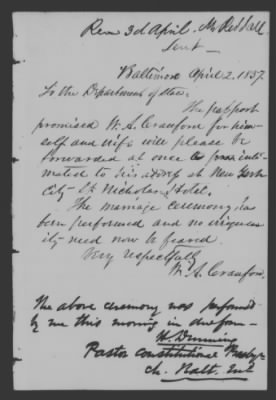 Rec 3d April. Mr Riddall
Sent
Baltimore April 2. 1857.
To the Department of State.
The passport
promised W. A. Crawford for him-
self and wife will please be
forwarded at once to
at New York
City St Nicholas Hotel.
The marriage ceremony has
been performed and no
ity need now be feared.
Very respectfully
W. A. Crawford.
The above ceremony was performed
by me this morning in due form
H. Dunning
Pastor Constitutional Presby
Ch. Balt.